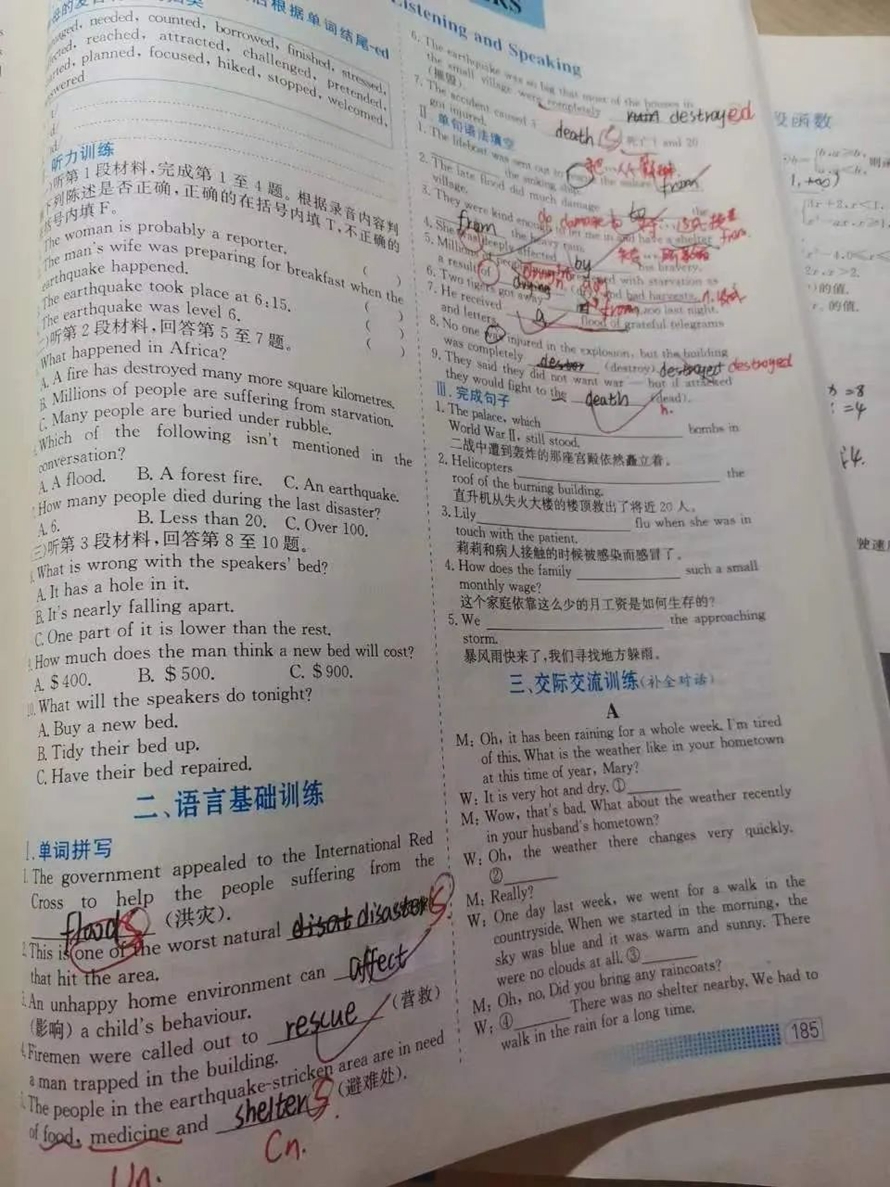 后根据单词结尾-ed
needed, counted, borrowed, finished, stressed,
reached, attracted, challenged, pretended,
planned, focused, hiked, stopped, welcomed,
听力训练
听第1段材料,完成第1至4题。根据录音内容判
下列陈述是否正确,正确的在括号内填T,不正确的
括号内填F。
The woman is probably a reporter. ( )
The man's wife was preparing for breakfast when the
earthquake happened. ( )
The earthquake took place at 6:15. ( )
The earthquake was level 6. ( )
听第2段材料,回答第5至7题。
What happened in Africa?
A. A fire has destroyed many more square kilometres.
B. Millions of people are suffering from starvation.
C. Many people are buried under rubble.
Which of the following isn't mentioned in the
conversation?
A. A flood. B. A forest fire. C. An earthquake.
How many people died during the last disaster?
A. 6. B. Less than 20. C. Over 100.
(三)听第3段材料,回答第8至10题。
What is wrong with the speakers' bed?
A. It has a hole in it.
B. It's nearly falling apart.
C. One part of it is lower than the rest.
How much does the man think a new bed will cost?
A. $400. B. $500. C. $900.
10. What will the speakers do tonight?
A. Buy a new bed.
B. Tidy their bed up.
C. Have their bed repaired.
二、语言基础训练
Ⅰ.单词拼写
1. The government appealed to the International Red
Cross to help the people suffering from the
floods (洪灾).
2. This is one of the worst natural disat disasters
that hit the area.
3. An unhappy home environment can affect
(影响) a child's behaviour.
4. Firemen were called out to rescue (营救)
a man trapped in the building.
5. The people in the earthquake-stricken area are in need
of food, medicine and shelters (避难处).
Un. Cn.
Listening and Speaking
6. The earthquake was so big that most of the houses in
the small village were completely ruin destroyed
(摧毁).
7. The accident caused 5 death(s) 死亡 and 20
got injured.
Ⅱ.单句语法填空
1. The lifeboat was sent out to the sailors from
the sinking ship.
2. The late flood did much damage to the
village.
3. They were kind enough to let me in and have a shelter
from the heavy rain.
4. She was deeply affected by his bravery.
5. Millions of people with starvation as
a result of and bad harvests.
6. Two tigers got away from zoo last night.
7. He received a flood of grateful telegrams
and letters.
8. No one was injured in the explosion, but the building
was completely (destroy). destroyed
9. They said they did not want war — but if attacked
they would fight to the death (dead).
n.
Ⅲ.完成句子
1. The palace, which bombs in
World War Ⅱ, still stood.
二战中遭到轰炸的那座宫殿依然矗立着。
2. Helicopters the
roof of the burning building.
直升机从失火大楼的楼顶救出了将近20人。
3. Lily flu when she was in
touch with the patient.
莉莉和病人接触的时候被感染而感冒了。
4. How does the family such a small
monthly wage?
这个家庭依靠这么少的月工资是如何生存的?
5. We the approaching
storm.
暴风雨快来了,我们寻找地方躲雨。
三、交际交流训练(补全对话)
A
M: Oh, it has been raining for a whole week. I'm tired
of this. What is the weather like in your hometown
at this time of year, Mary?
W: It is very hot and dry. ①
M: Wow, that's bad. What about the weather recently
in your husband's hometown?
W: Oh, the weather there changes very quickly.
②
M: Really?
W: One day last week, we went for a walk in the
countryside. When we started in the morning, the
sky was blue and it was warm and sunny. There
were no clouds at all. ③
M: Oh, no. Did you bring any raincoats?
W: ④ There was no shelter nearby. We had to
walk in the rain for a long time.
185
段函数
的值.
的值.